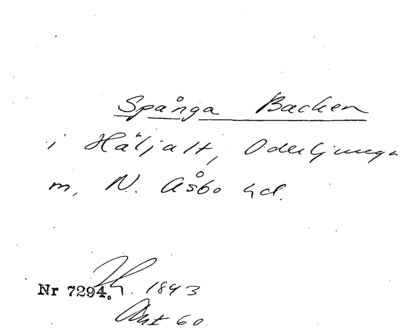 Spånga Backen
i Häljalt, Oderljunga
m, N. Åsbo hd.
Nr 7294. 1843
Akt 60.